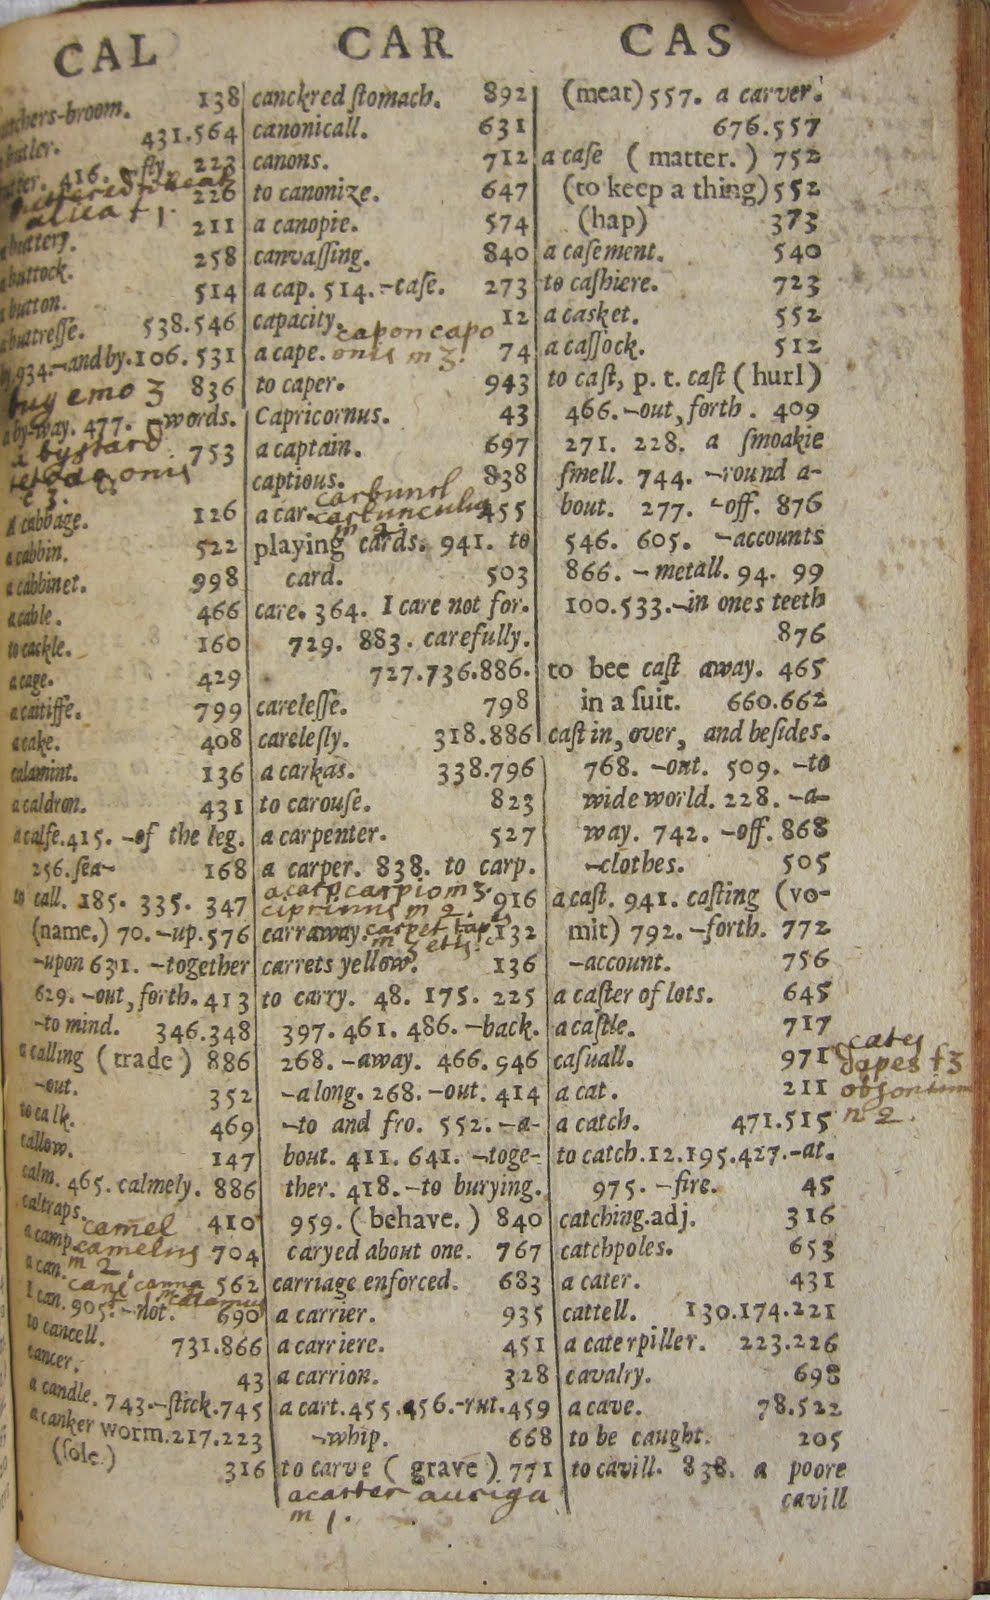 CAL CAR CAS
138
-broom. 431.564
butler. 223
416. -fly. 226
211
buttery. 258
a buttock. 514
a button. 538.546
a buttresse.
934.-and by.106. 531
buy emo 3 836
a by-way. 477. -words.
a bystard 753
3.
A cabbage. 126
a cabbin. 522
a cabbinet. 998
a cable. 466
to cackle. 160
a cage. 429
a caitiffe. 799
a cake. 408
calamint. 136
a caldron. 431
a calfe.415. -of the leg.
256. sea- 168
to call. 185. 335. 347
(name.) 70. -up. 576
-upon 631. -together
629. -out, forth. 413
-to mind. 346.348
a calling (trade) 886
-out. 352
to calk. 469
callow. 147
calm. 465. calmely. 886
caltraps. 410
camel
a camp. camelus 704
m 2.
a can. cane canna 562
I can. 905. -not. calamus 690
to cancell. 731.866
cancer. 43
a candle. 743.-stick.745
a canker worm.217.223
(sole.) 316
canckred stomach. 892
canonicall. 631
canons. 712
to canonize. 647
a canopie. 574
canvassing. 840
a cap. 514. -case. 273
capacity. 12
capon capo
a cape. onis m 3. 74
to caper. 943
Capricornus. 43
a captain. 697
captious. 838
carbuncl
a car. carbunculus 455
m 2.
playing cards. 941. to
card. 503
care. 364. I care not for.
729. 883. carefully.
727.736.886.
carelesse. 798
carelesly. 318.886
a carkas. 338.796
to carouse. 823
a carpenter. 527
a carper. 838. to carp.
a carp carpio m 3. 916
ciprinus m 2.
carraway. carpet tapes 132
m 3 etis.
carrets yellow. 136
to carry. 48. 175. 225
397. 461. 486. -back.
268. -away. 466. 946
-along. 268. -out. 414
-to and fro. 552. -a-
bout. 411. 641. -toge-
ther. 418. -to burying.
959. (behave.) 840
caryed about one. 767
carriage enforced. 683
a carrier. 935
a carriere. 451
a carrion. 328
a cart.455.456.-rut.459
-whip. 668
to carve (grave) 771
a carter auriga
m 1.
(meat) 557. a carver.
676.557
a case (matter.) 752
(to keep a thing) 552
(hap) 373
a casement. 540
to cashiere. 723
a casket. 552
a cassock. 512
to cast, p. t. cast (hurl)
466. -out, forth. 409
271. 228. a smoakie
smell. 744. -round a-
bout. 277. -off. 876
546. 605. -accounts
866. -metall. 94. 99
100.533.-in ones teeth
876
to bee cast away. 465
in a suit. 660.662
cast in, over, and besides.
768. -out. 509. -to
wide world. 228. -a-
way. 742. -off. 868
-clothes. 505
a cast. 941. casting (vo-
mit) 792. -forth. 772
-account. 756
a caster of lots. 645
a castle. 717
casuall. 971
a cat. 211
a catch. 471.515
to catch.12.195.427.-at.
975. -fire. 45
catching.adj. 316
catchpoles. 653
a cater. 431
cattell. 130.174.221
a caterpiller. 223.226
cavalry. 698
a cave. 78.522
to be caught. 205
to cavill. 838. a poore
cavill
cates
dapes f 3
obsonium
n 2.